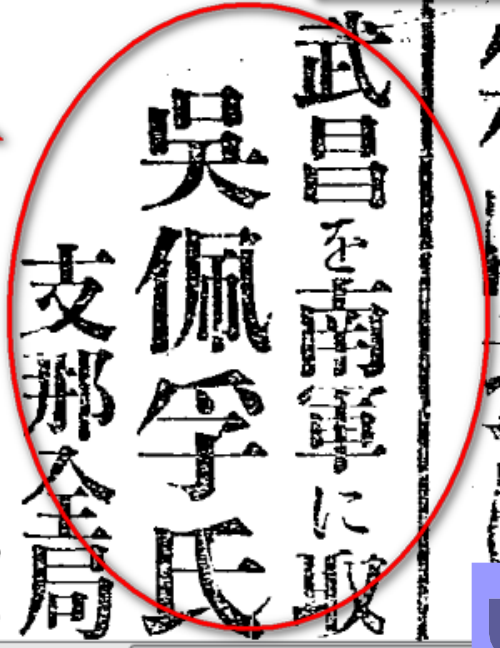 武昌を南軍に取
吳佩孚氏
支那全局